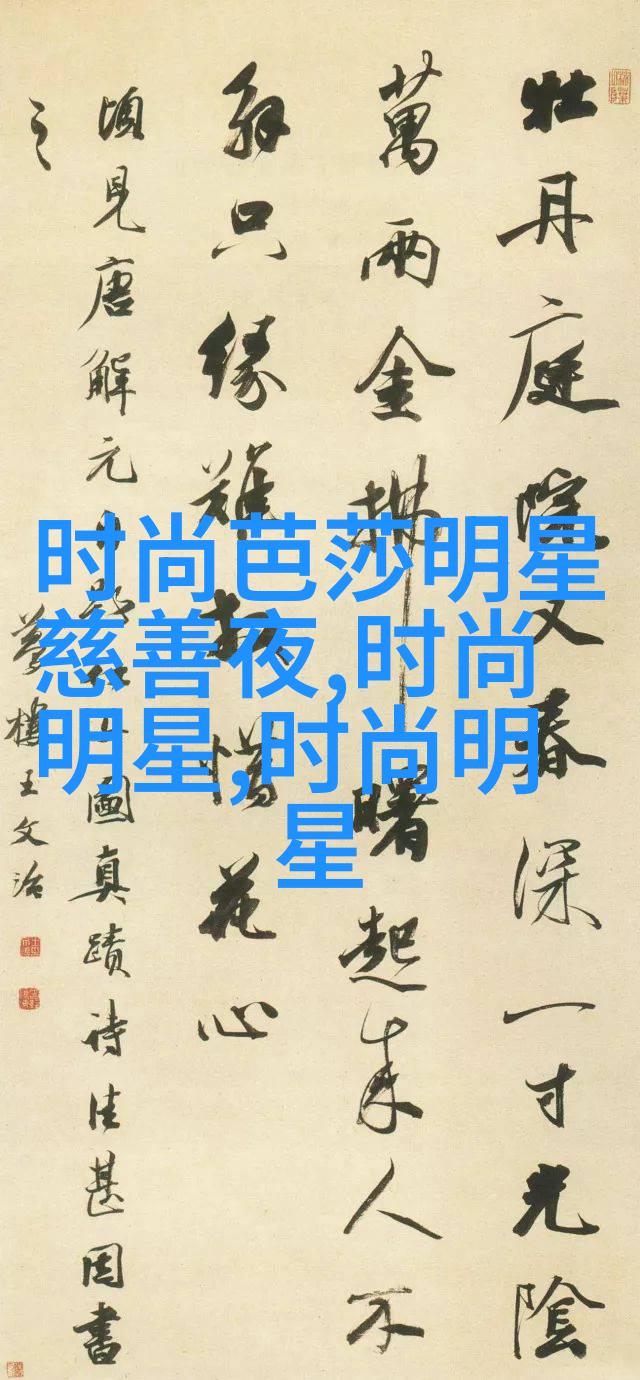 牡丹庭院又春深一寸光陰
萬兩金拂曙起來人不
解只緣難放惜花心
頃見唐解元圖真蹟詩佳甚因書
之
夢樓王文治
时尚芭莎明星
慈善夜,时尚
明星,时尚明
星